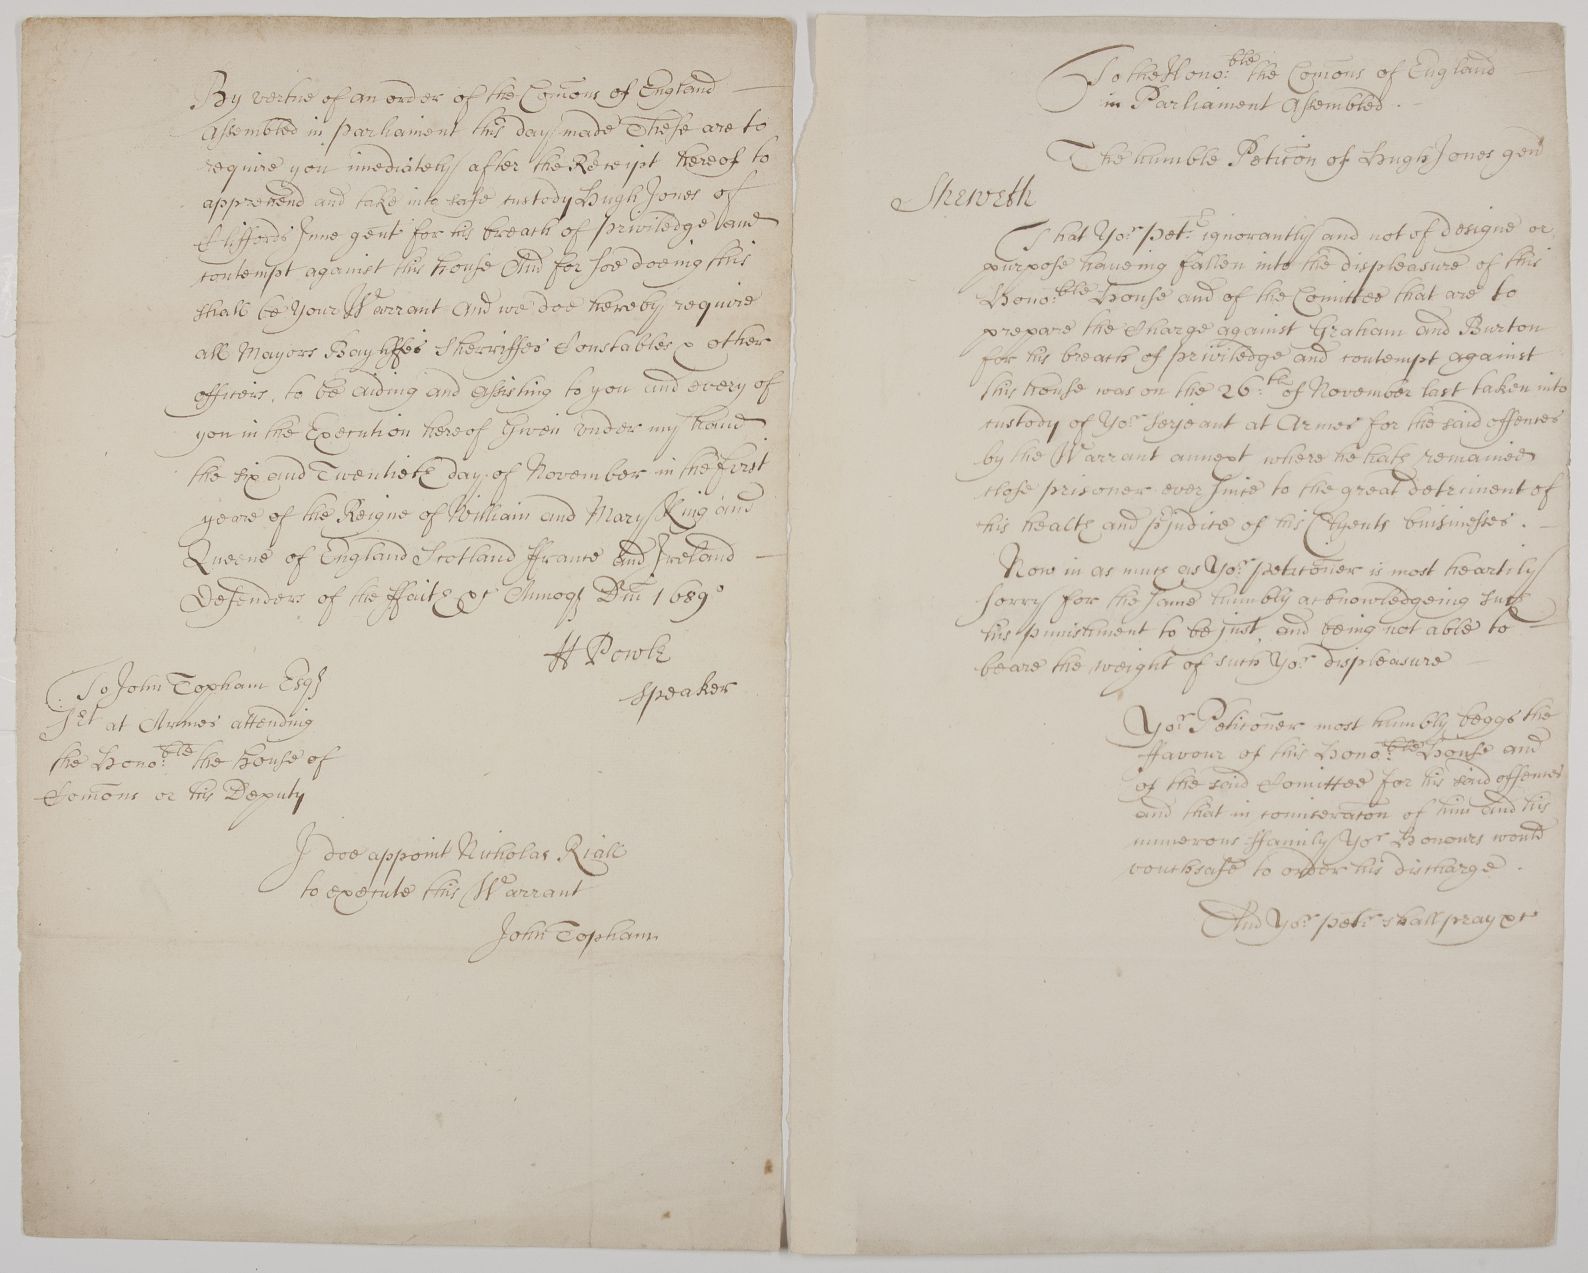 By vertue of an order of the Com̄ons of England
Assembled in parliament this day made These are to
require you imediately after the Receipt hereof to
apprehend and take into safe custody Hugh Jones of
Cliffords Inne gent for his breach of priviledge and
contempt against this house And for soe doeing this
shall be Your Warrant And we doe hereby require
all Mayors Bayliffes Sherriffes Constables & other
officers, to be aiding and assisting to you and every of
you in the Execution hereof Given under my hand
the six and Twentieth day of November in the first
yeare of the Reigne of William and Mary King and
Queene of England Scotland ffrance and Ireland
Defenders of the ffaith &c Annoq Dm̄ 1689
H Powle
Speaker
To John Topham Esq
Sert at Armes attending
the Hono:ble the house of
Com̄ons or his Deputy
I doe appoint Nicholas Riall
to execute this Warrant
John Topham
To the Hono:ble the Com̄ons of England
in Parliament Assembled.
The humble Petic̄on of Hugh Jones gent
Sheweth
That Yor: Petr: ignorantly and not of designe or
purpose haveing fallen into the displeasure of this
Hono:ble House and of the Comittee that are to
prepare the Charge against Graham and Burton
for his breach of priviledge and contempt against
this house was on the 26:th of November last taken into
custody of Yor: Serjeant at Armes for the said offences
by the Warrant annext where he hath remained
close prisoner ever since to the great detriment of
his health and p̱judice of his Clyents buisinesses.
Now in as much as Yor: petic̄oner is most heartily
sorry for the same humbly acknowledgeing such
his punishment to be just, and being not able to
beare the weight of such Yor: displeasure
Yor: Petic̄oner most humbly beggs the
ffavour of this Hono:ble House and
of the said Comittee for his said offences
and that in comiserac̄on of him and his
numerous ffamily Yor: Honours would
vouchsafe to order his discharge.
And Yor: petr: shall pray &c